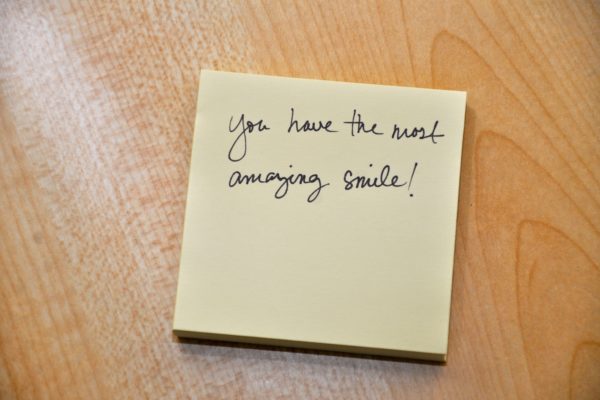 you have the most
amazing smile!